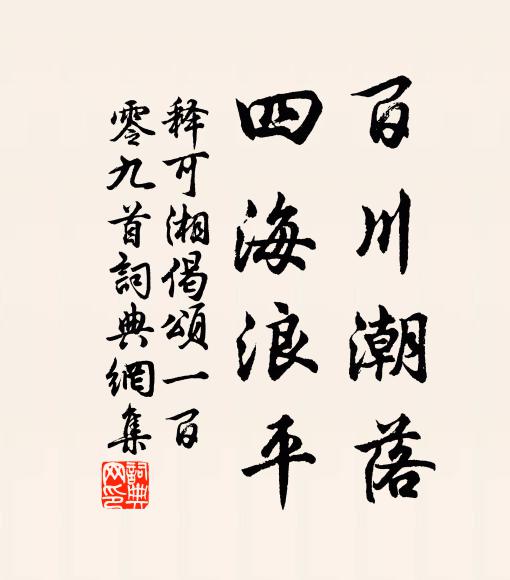 百川潮落
四海浪平
释可湘偈頌一百
零九首詞典網集
詞典網印